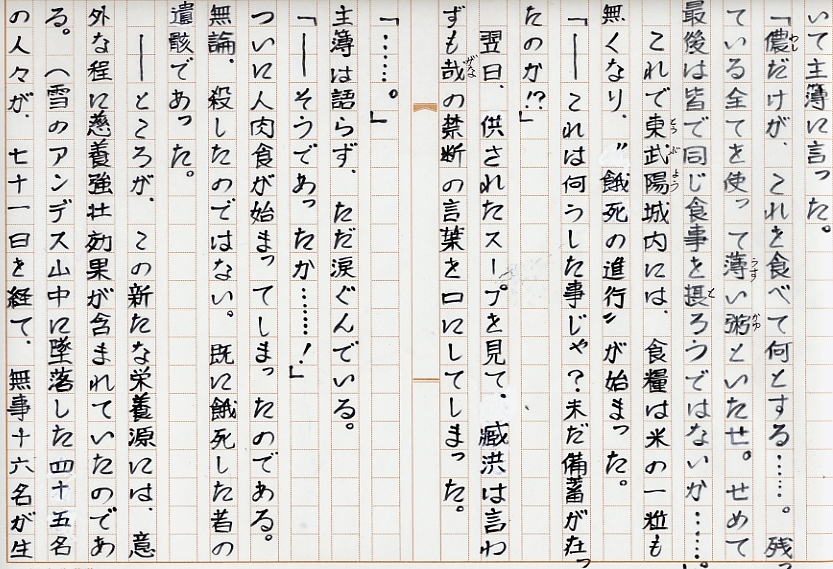 いて主簿に言った。
「儂だけが、これを食べて何とする……。残っ
ている全てを使って薄い粥といたせ。せめて
最後は皆で同じ食事を摂ろうではないか……。
これで東武陽城内には、食糧は米の一粒も
無くなり、〝餓死の進行〟が始まった。
「――これは何うした事じゃ？未だ備蓄が在っ
たのか!?」
翌日、供されたスープを見て、臧洪は言わ
ずも哉の禁断の言葉を口にしてしまった。
「……。」
主簿は語らず、ただ涙ぐんでいる。
「――そうであったか……！」
ついに人肉食が始まってしまったのである。
無論、殺したのではない。既に餓死した者の
遺骸であった。
――ところが、この新たな栄養源には、意
外な程に慈養強壮効果が含まれていたのであ
る。〈雪のアンデス山中に墜落した四十五名
の人々が、七十一日を経て、無事十六名が生